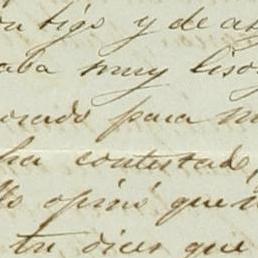 tigo y de a
aba muy liso
orado para m
ha contestado,
opiné que n
tu dices que